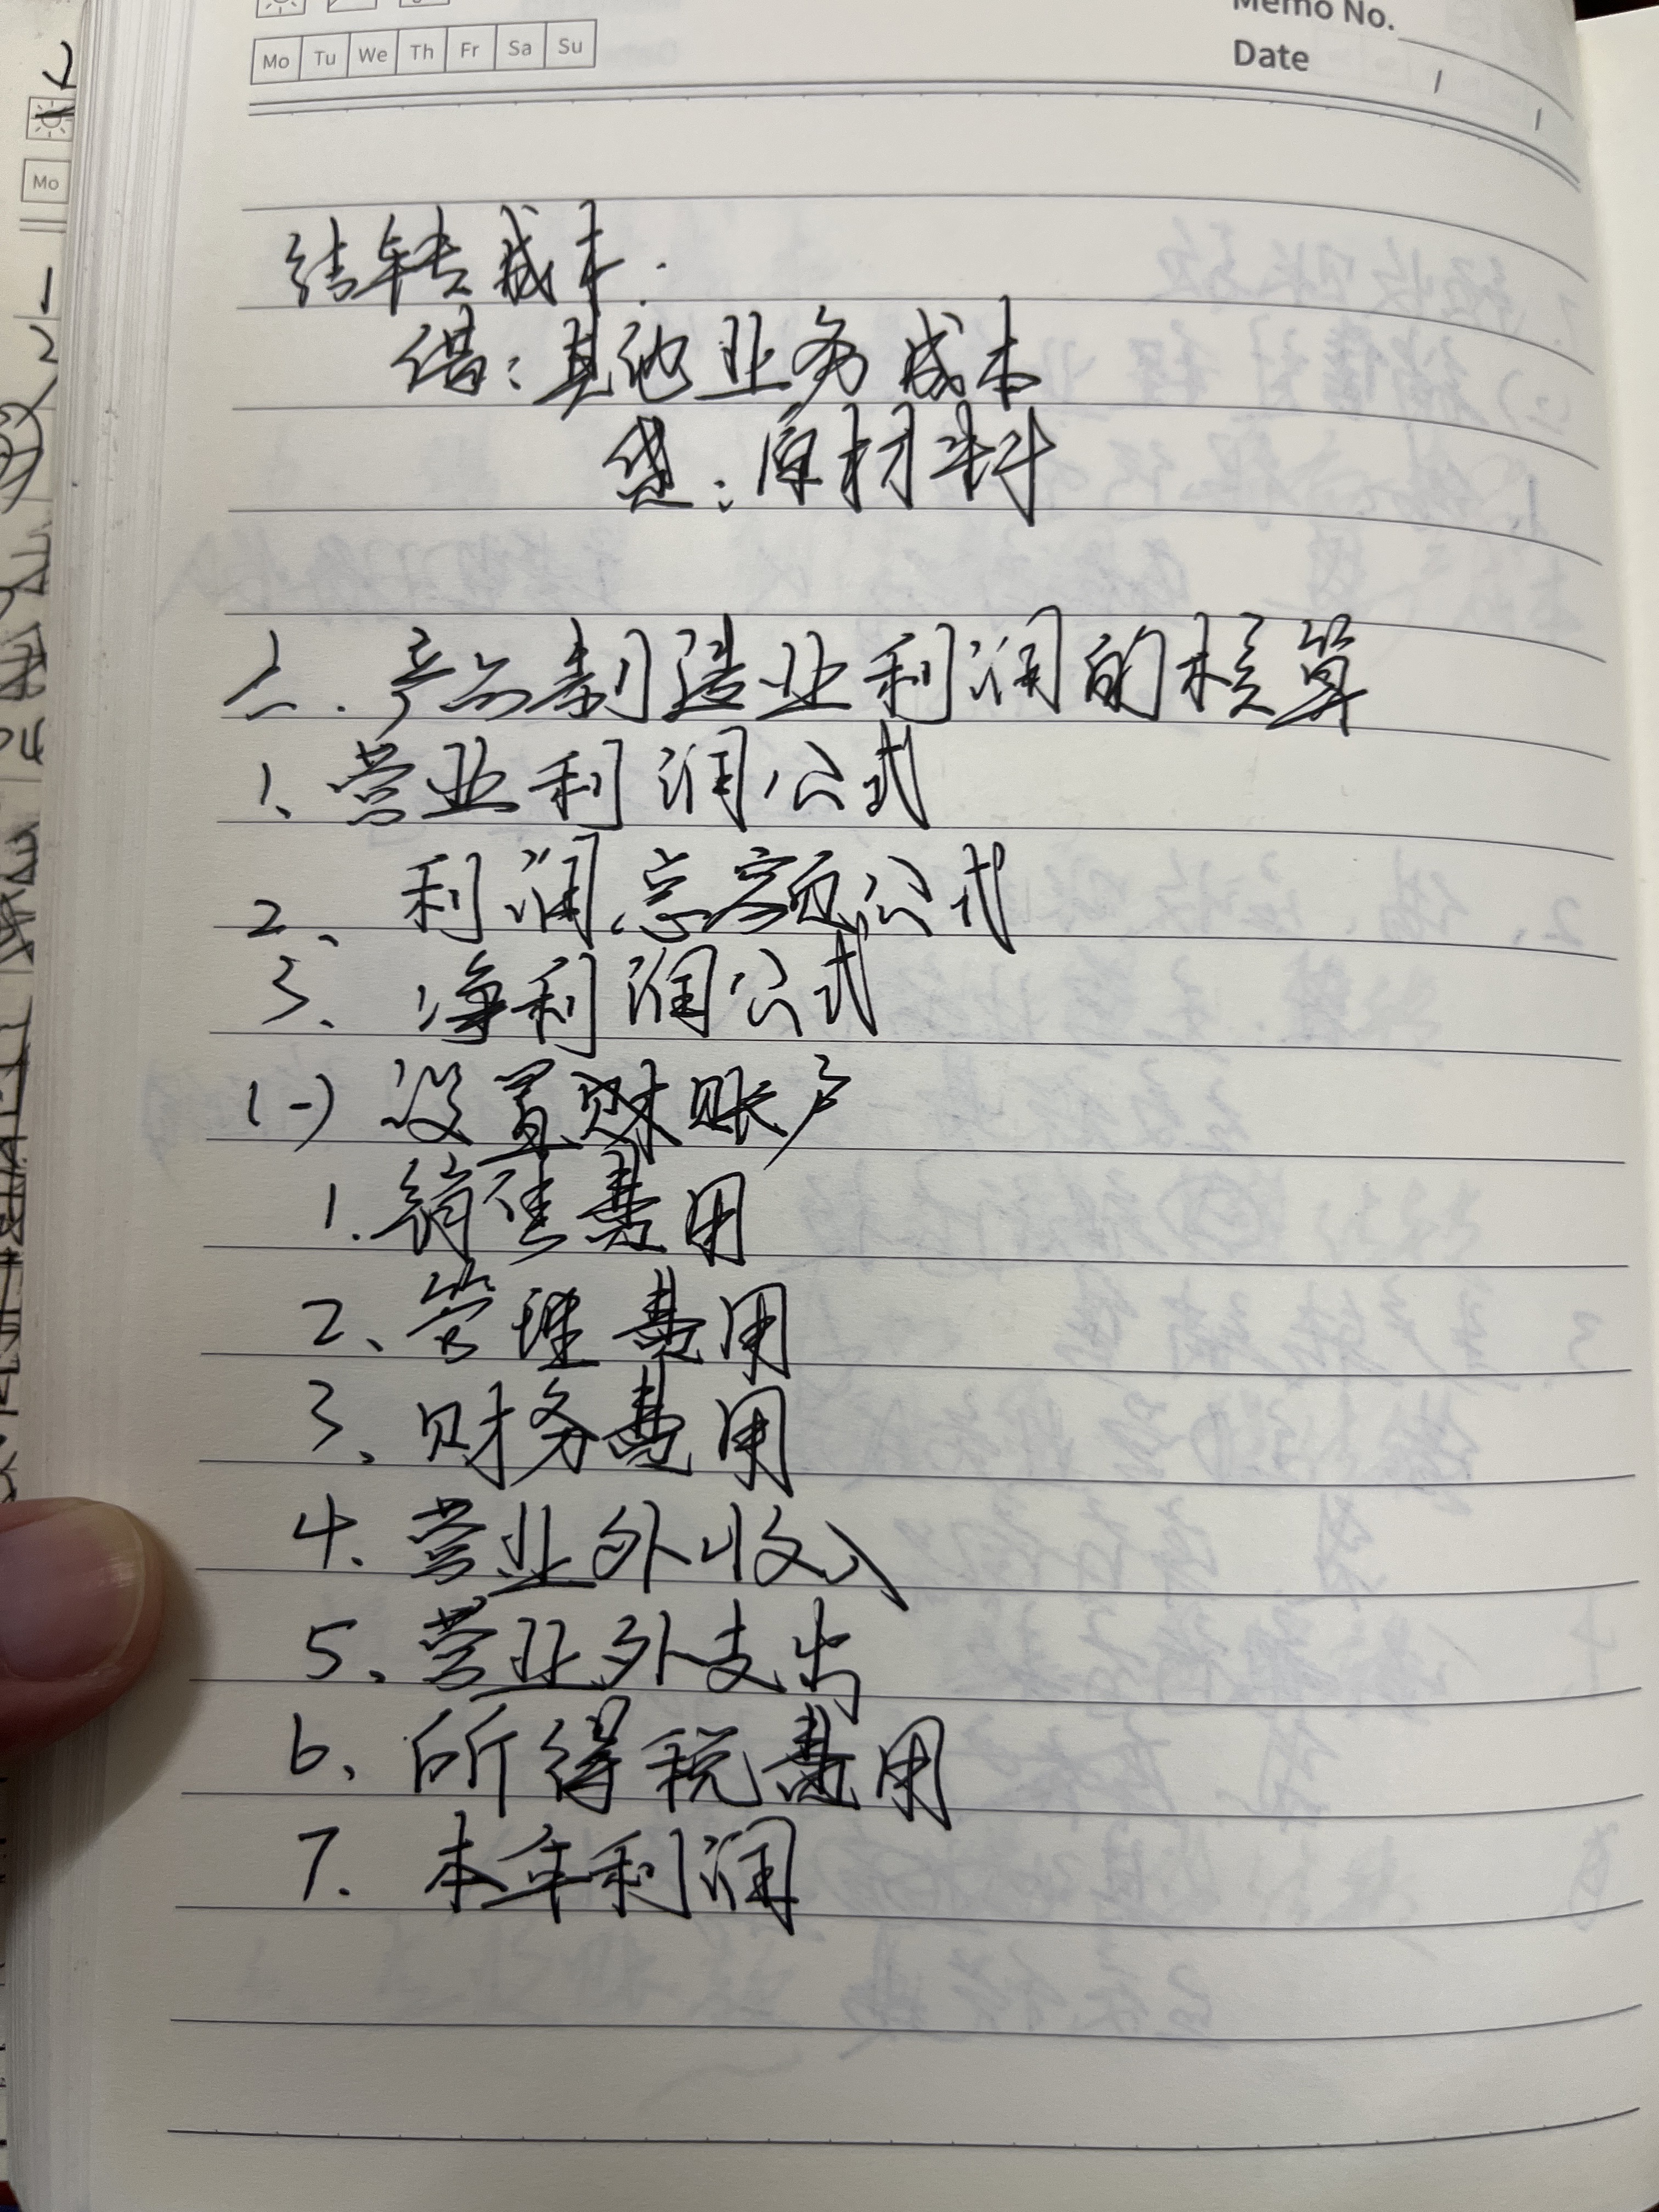 Memo No.
Mo Tu We Th Fr Sa Su
Date / /
Mo
结转成本.
借:其他业务成本
贷:原材料
六.产品制造业利润的核算
1、营业利润公式
2、利润总额公式
3、净利润公式
(一)设置账户
1.销售费用
2、管理费用
3、财务费用
4、营业外收入
5、营业外支出
6、所得税费用
7.本年利润